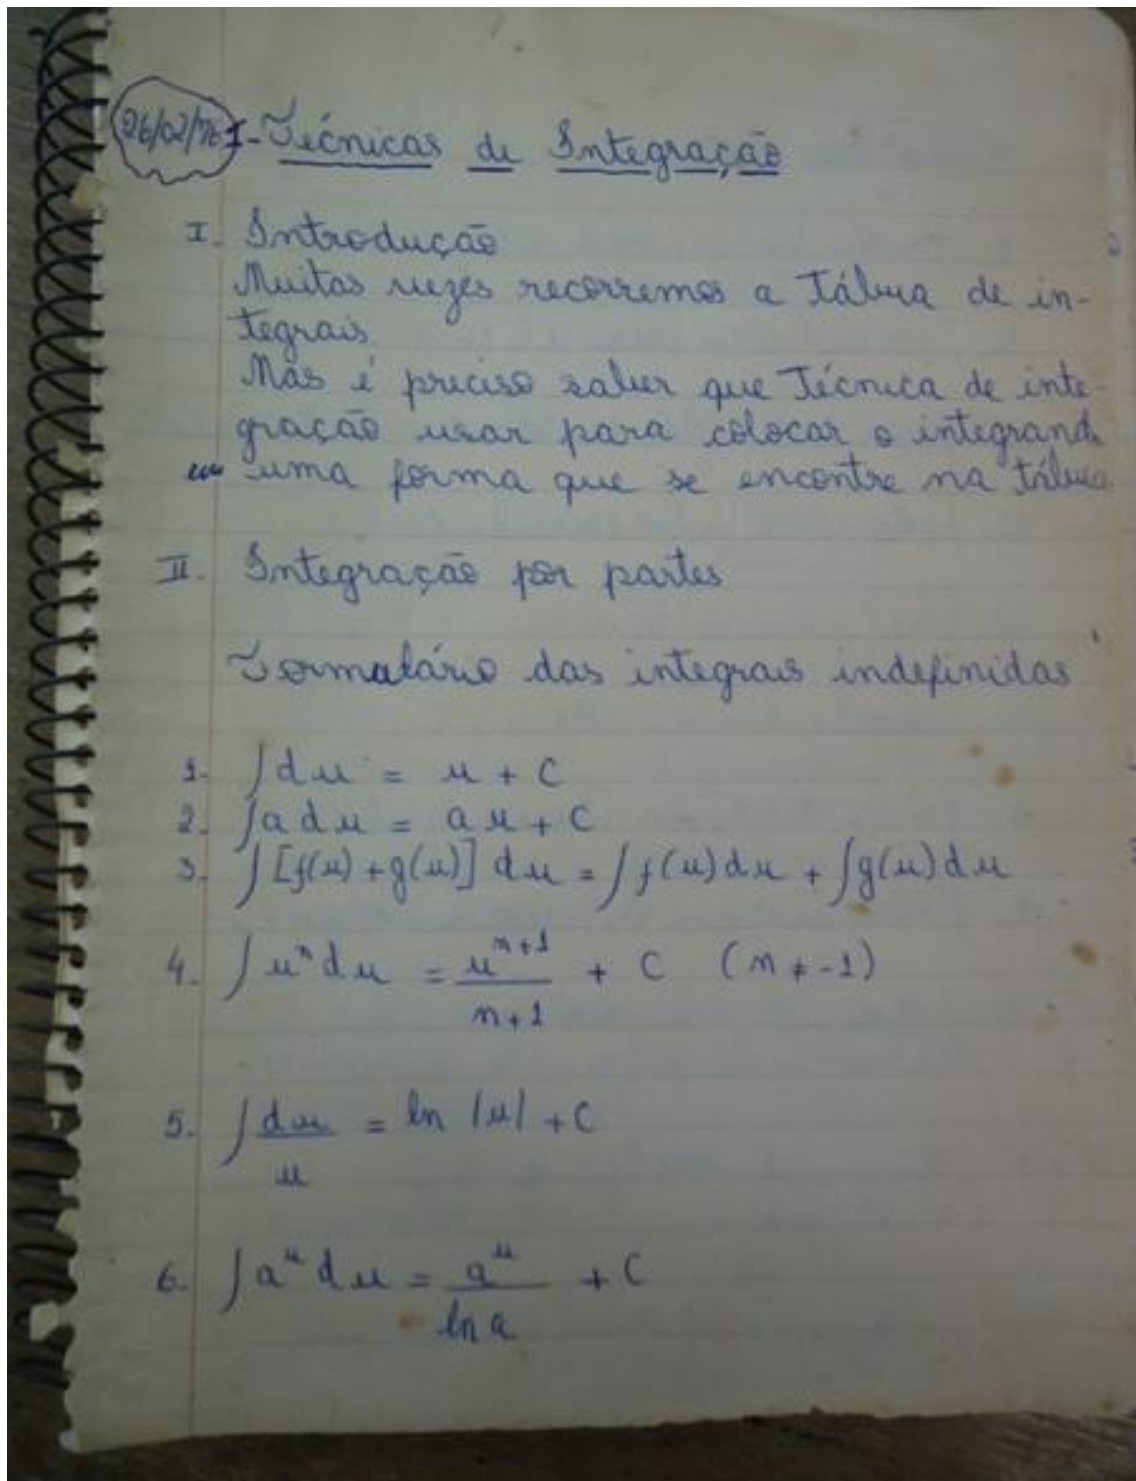 26/02/76 I- Técnicas de Integração
I. Introdução
Muitas vezes recorremos a Tábua de in-
tegrais.
Mas é preciso saber que Técnica de inte-
gração usar para colocar o integrando
em uma forma que se encontre na tábua
II. Integração por partes
Formulário das integrais indefinidas
1- ∫du = u + C
2. ∫a du = au + C
3. ∫[f(u)+g(u)] du = ∫f(u)du + ∫g(u)du
4. ∫uⁿdu = uⁿ⁺¹/n+1 + C (n ≠ -1)
5. ∫du/u = ln |u| + C
6. ∫aᵘdu = aᵘ/ln a + C